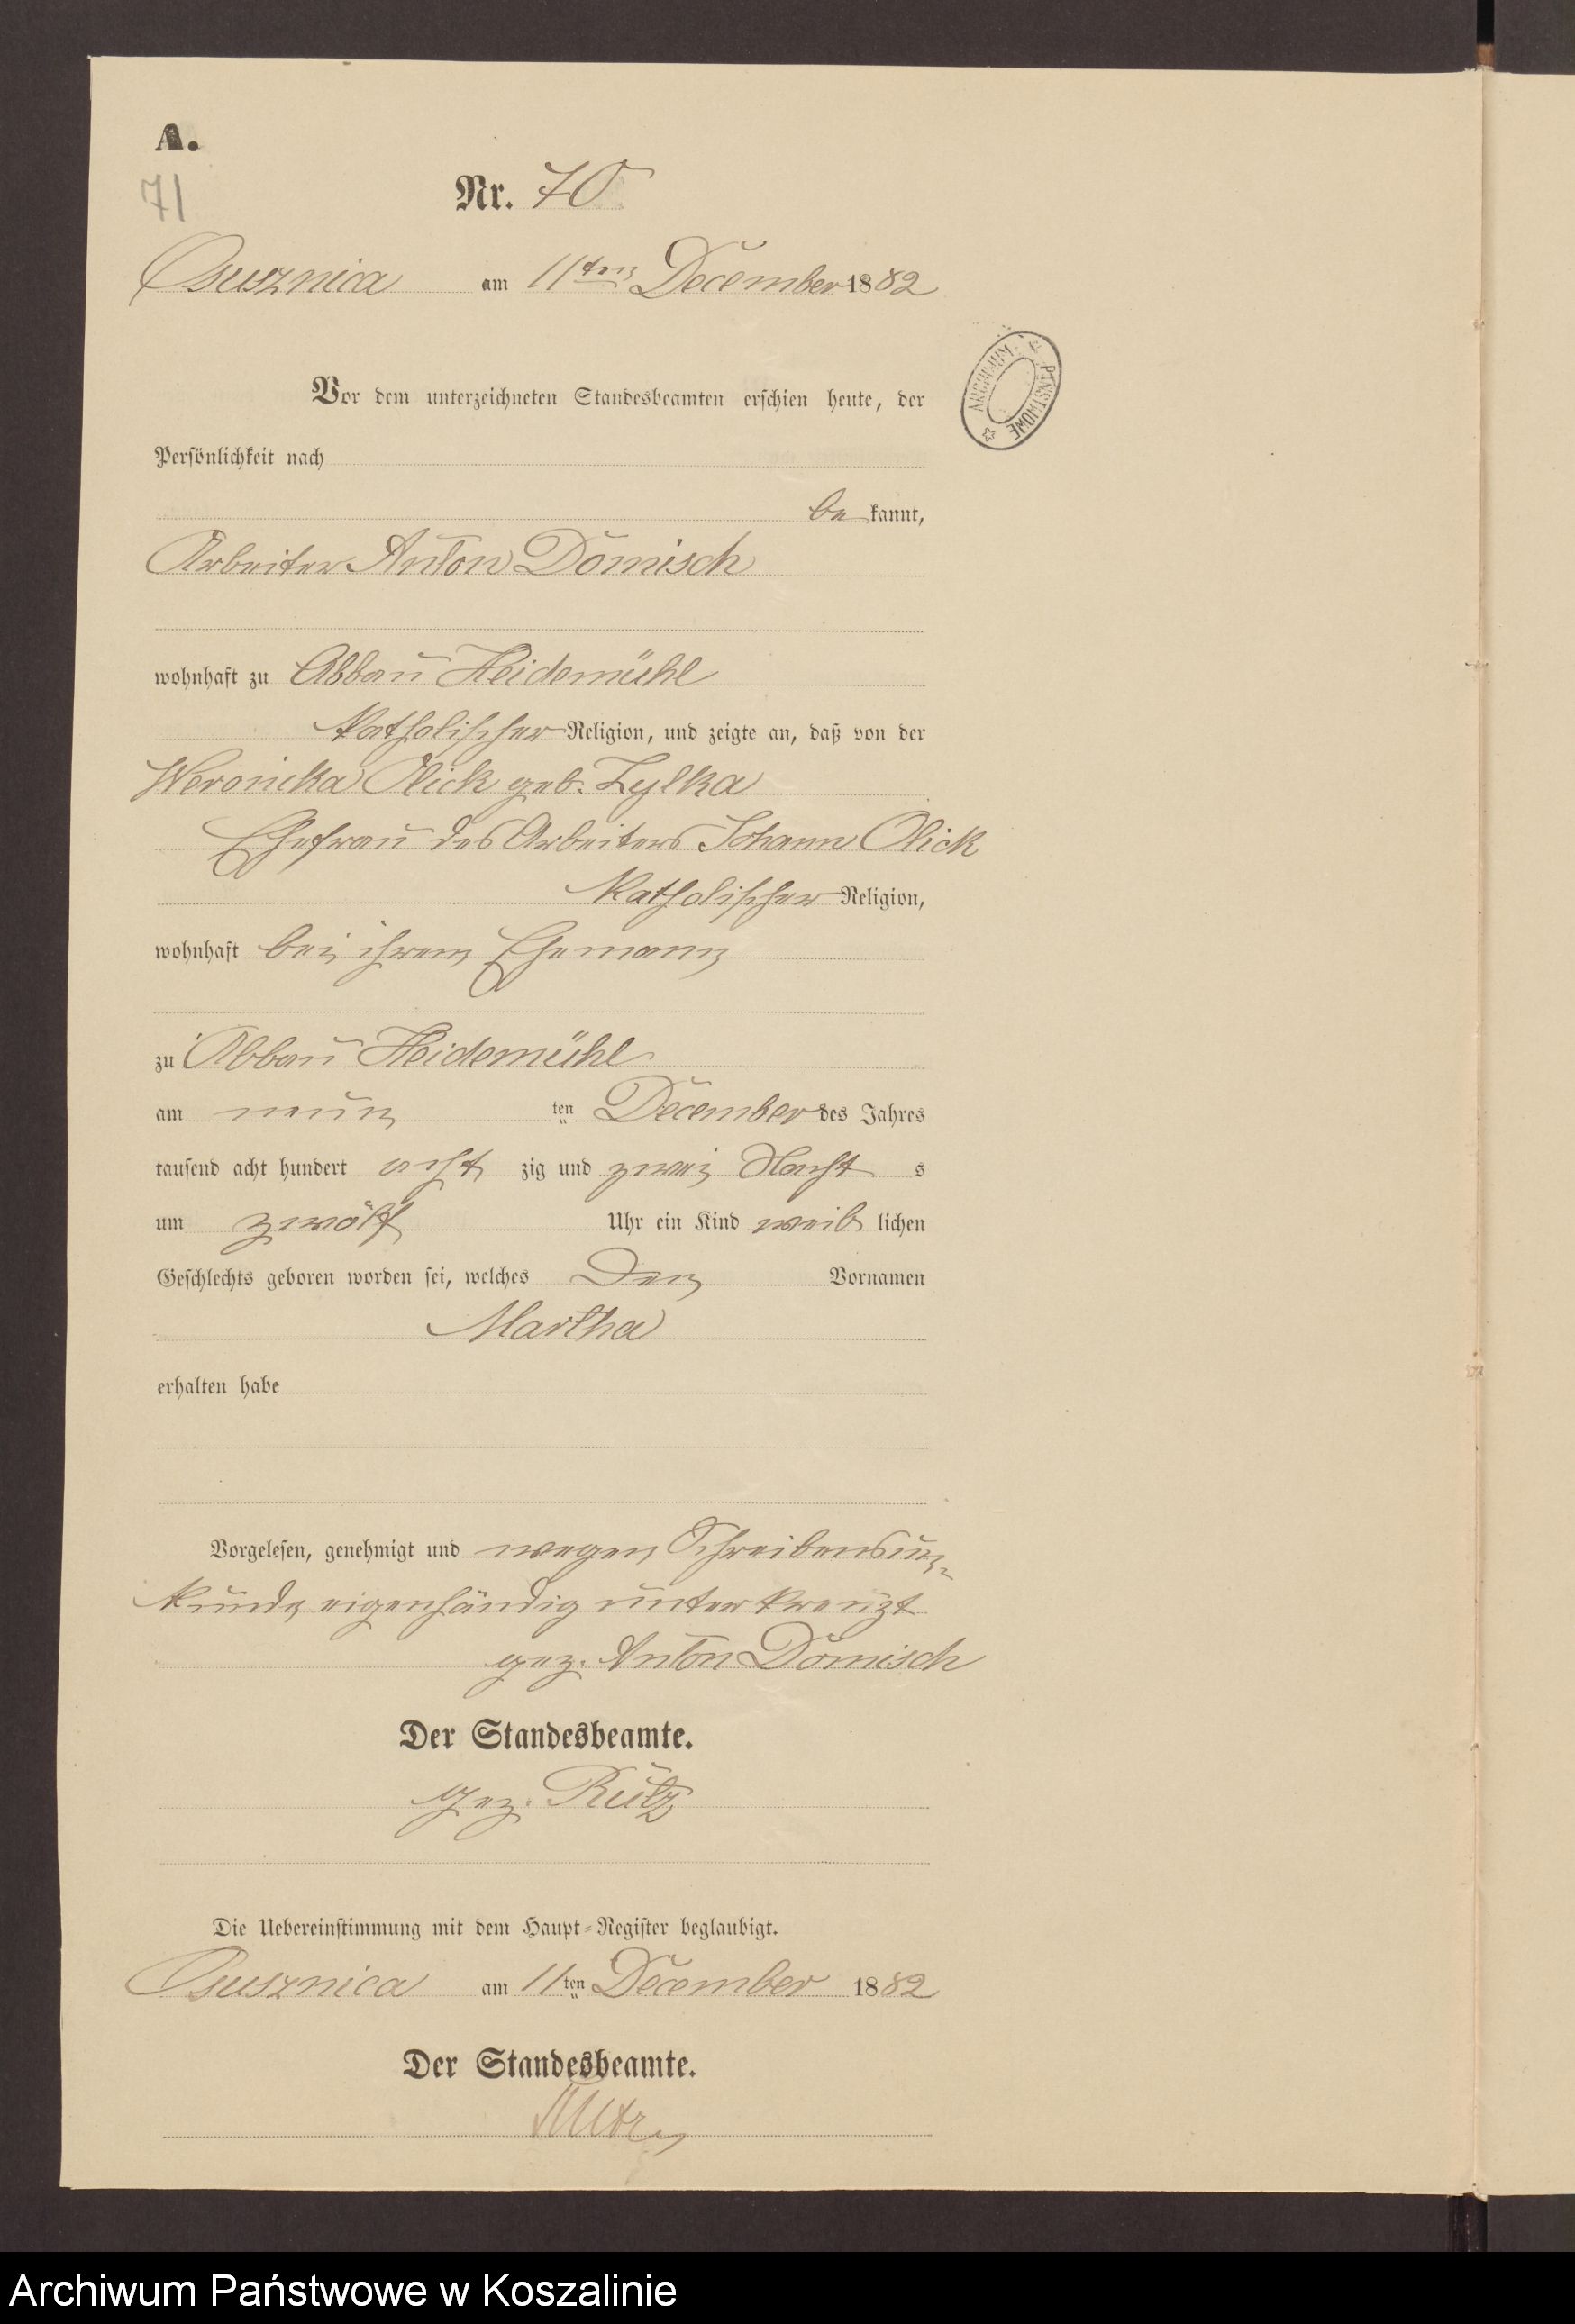 A.
71
Nr. 70
Ossusznica am 11ten December 1882
ARCHIWUM PAŃSTWOWE
Vor dem unterzeichneten Standesbeamten erschien heute, der
Persönlichkeit nach
be kannt,
Arbeiter Anton Domisch
wohnhaft zu Abbau Heidemühl
katholischer Religion, und zeigte an, daß von der
Weronicka Olick geb. Zylka
Ehefrau des Arbeiters Johann Olick
katholischer Religion,
wohnhaft bei ihrem Ehemann
zu Abbau Heidemühl
am neun ten December des Jahres
tausend acht hundert acht zig und zwei Nacht s
um zwölf Uhr ein Kind weib lichen
Geschlechts geboren worden sei, welches den Vornamen
Martha
erhalten habe
Vorgelesen, genehmigt und wegen Schreibensun-
kunde eigenhändig unterkreuzt
gez. Anton Domisch
Der Standesbeamte.
gez. Rutz
Die Uebereinstimmung mit dem Haupt-Register beglaubigt.
Ossusznica am 11ten December 1882
Der Standesbeamte.
Rutz
Archiwum Państwowe w Koszalinie